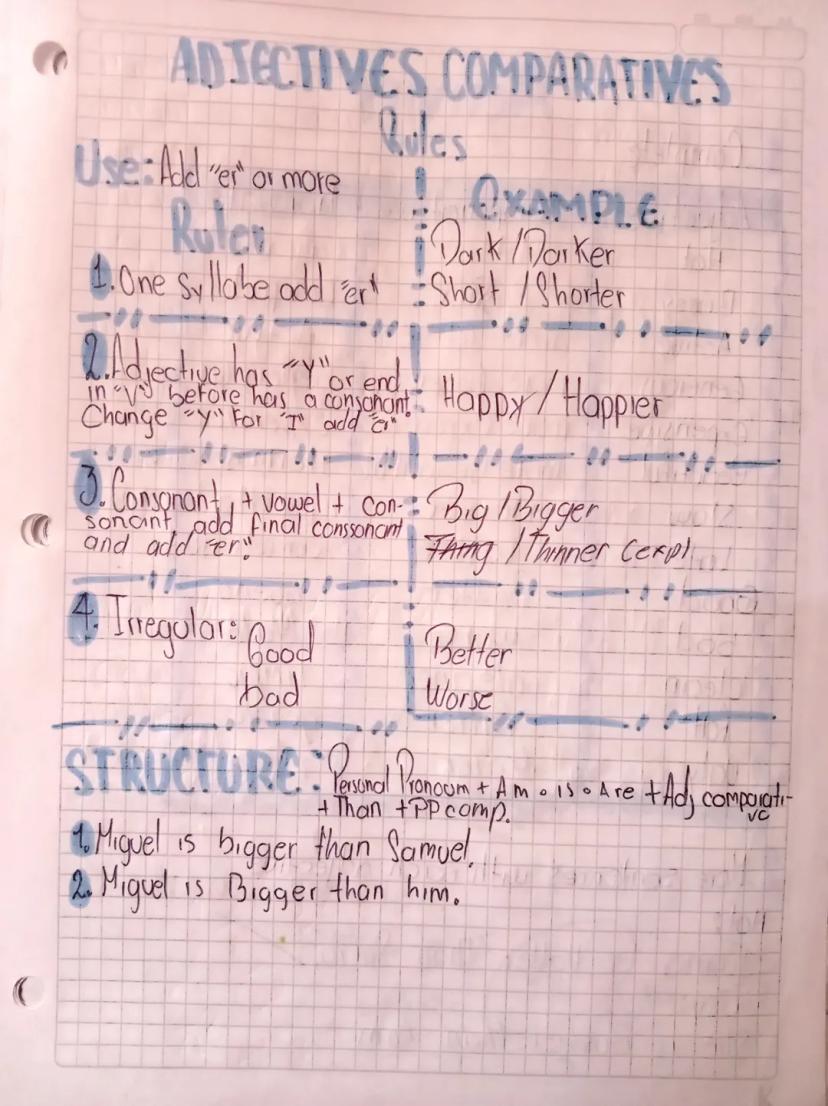 ADJECTIVES COMPARATIVES
Rules
Use: Add "er" or more
Rules
EXAMPLE
1. One syllabe add "er"
Dark / Darker
Short / Shorter
2. Adjective has "Y" or end
in "V" before has a consonant
Change "y" For "I" add "er"
Happy / Happier
3. Consonant + vowel + con-
sonant, add final conssonant
and add "er".
Big / Bigger
/ Thinner
4. Irregular: Good
bad
Better
Worse
STRUCTURE: Personal Pronoum + Am o is o Are + Adj comparati-
vc
+ Than + PP comp.
1. Miguel is bigger than Samuel.
2. Miguel is Bigger than him.